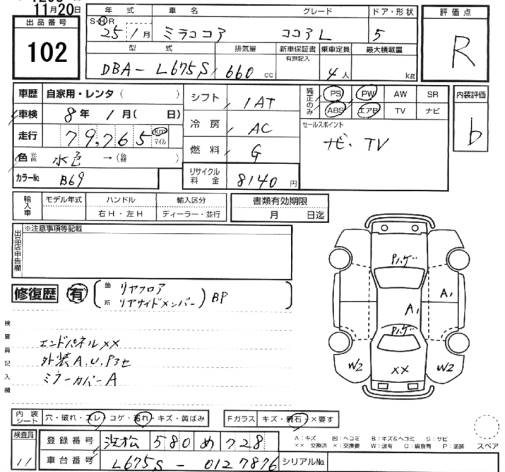 11月20日
出品番号
102
年式 車名 グレード ドア・形状
S・H・R 25年 1月 ミラココア ココア L 5
型式 排気量 新車保証書 有無記入 乗車定員 最大積載量
DBA-L675S 660 cc 4人 kg
評価点
R
車歴 自家用・レンタ( )
車検 8年 1月( 日)
走行 79,765 km マイル
色 元色 水色 →(替 )
カラーNo B69
シフト 1AT
冷房 AC
燃料 G
リサイクル料金 8140円
純正のみ PS PW AW SR
ABS エアB TV ナビ
セールスポイント
ナビ、TV
内装評価
b
輸入車 モデル年式 ハンドル 輸入区分
右H・左H ディーラー・並行
書類有効期限
月 日迄
出品店申告欄 ※注意事項等記載
修復歴 有 (箇所 リヤフロア リヤサイドメンバー) BP
検査員記入欄
エンドパネルXX
外装A、U、Pヨセ
ミラーカバーA
Pハゲ
A1
A1
Pハゲ
W2 XX W2
内装シート 穴・破れ・スレ・コゲ・汚れ・キズ・黄ばみ
Fガラス キズ・飛石・×要す
A:キズ U:ヘコミ B:キズ&ヘコミ S:サビ
スペア
検査員 11
登録番号 浜松 580 め 728
車台番号 L675S-0127876
シリアルNo.